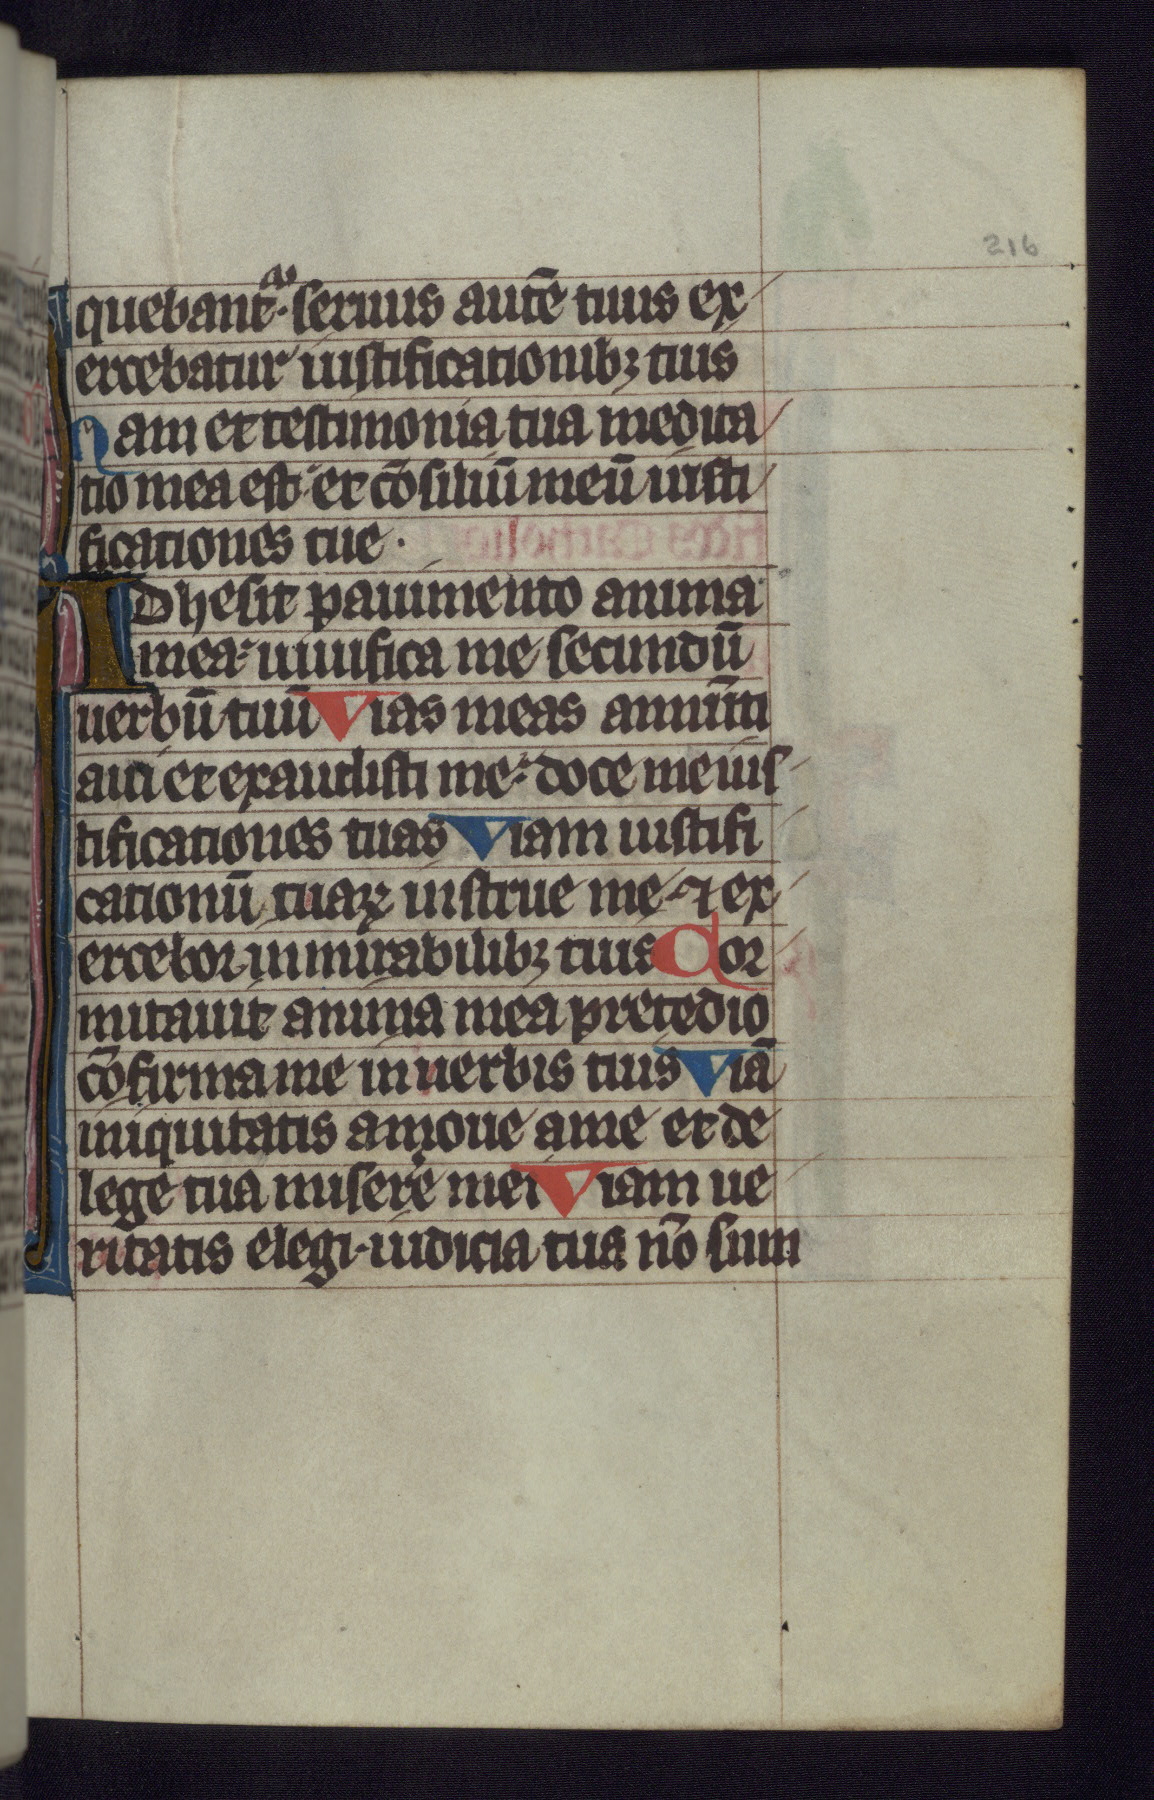 216
quebant᷑· seruus autē tuus ex
ercebatur iustificationibꝫ tuis
Nam et testimonia tua medita
tio mea est· et cōsiliū meū iusti
ficationes tue ·
Adhesit pauimento anima
mea· uiuifica me secundū
uerbū tuū Vias meas annūti
aui et exaudisti me· doce me ius
tificationes tuas Viam iustifi
cationū tuaꝝ instrue me· ⁊ ex
ercebor in mirabilibꝫ tuis Dor
mitauit anima mea pre tedio
cōfirma me in uerbis tuis Viā
iniquitatis amoue a me et de
lege tua miserē mei Viam ue
ritatis elegi· iudicia tua nō sum